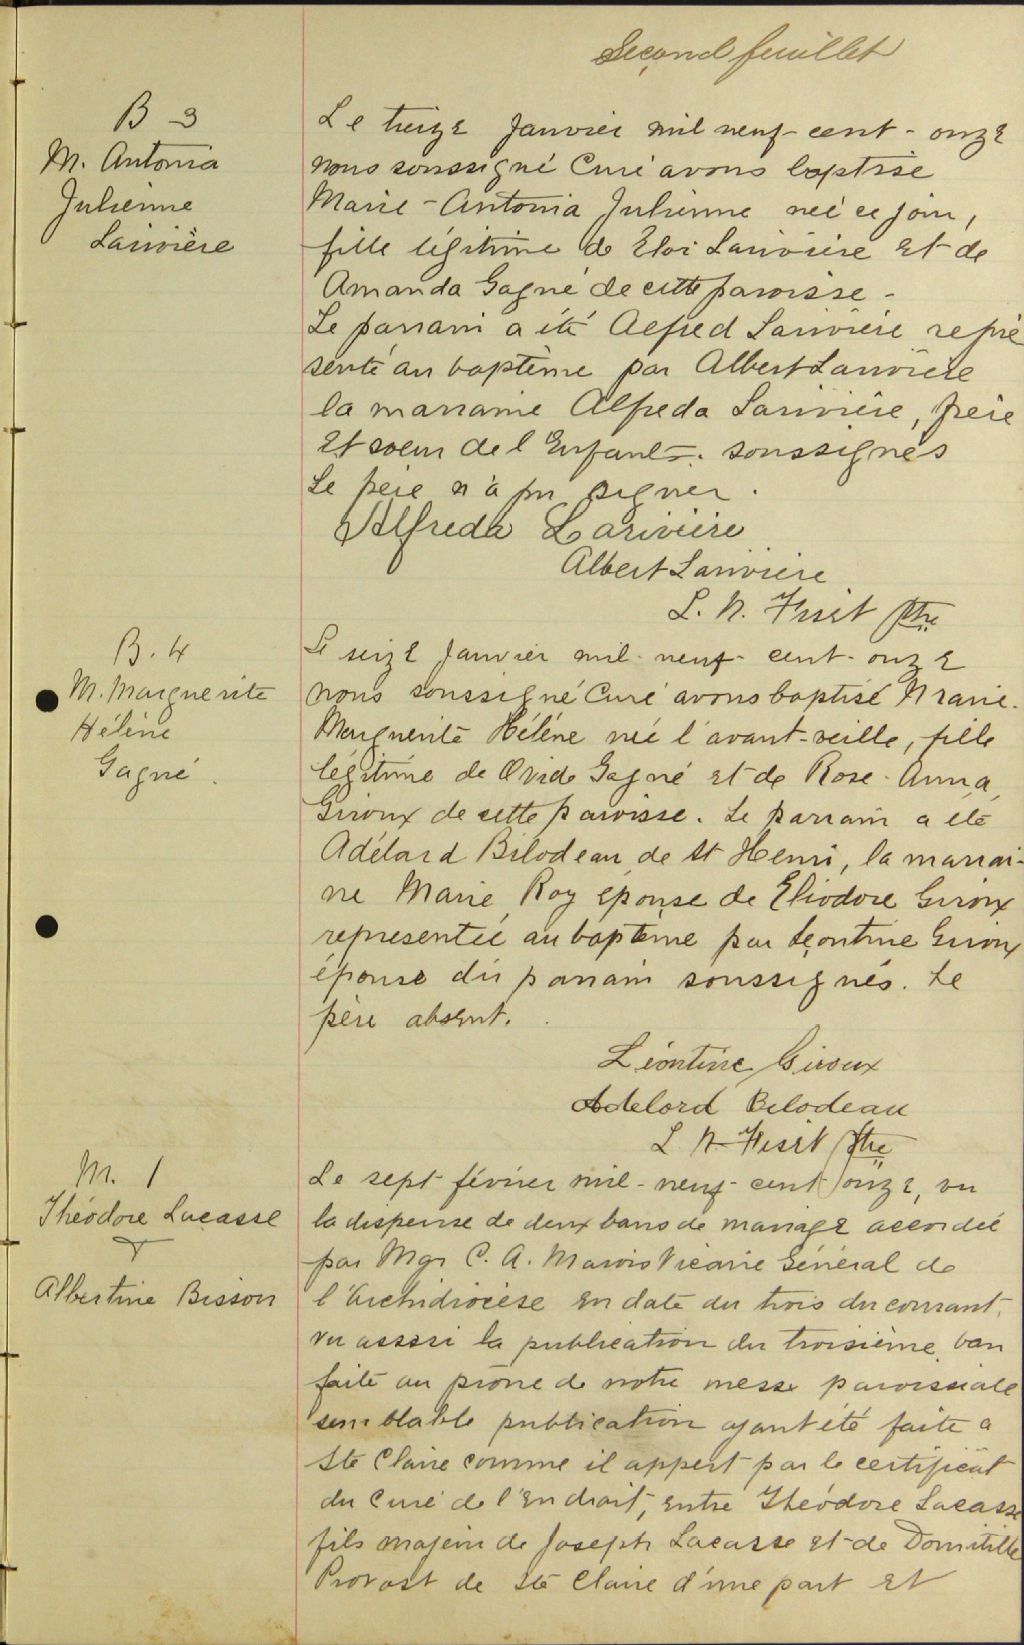 Second feuillet
B 3
M. Antonia
Julienne
Larivière
Le treize Janvier mil neuf-cent-onze
nous soussigné Curé avons baptisé
Marie-Antonia Julienne neé ce jour,
fille légitime de Eloi Larivière et de
Amanda Gagné de cette paroisse-
Le parrain a été Alfred Larivière repré
senté au baptême par Albert Larivière
la marraine Alfreda Larivière, frère
et soeur de l'Enfant. soussignés
Le père n'a pu signer.
Alfreda Larivière
Albert Larivière
L. N. Fiset Ptre
B. 4
M. Marguerite
Hélène
Gagné.
Le seize Janvier mil-neuf-cent-onze
nous soussigné Curé avons baptisé Marie-
Marguerite Hélène neé l'avant-veille, fille
légitime de Ovide Gagné et de Rose-Anna
Giroux de cette paroisse. Le parrain a été
Adélard Bilodeau de St Henri, la marrai-
ne Marie Roy épouse de Eliodore Giroux
representée au baptême par Léontine Giroux
épouse du parrain soussignés. Le
père absent.
Léontine Giroux
Adelord Belodeau
L. N. Fiset Ptre
M. 1
Théodore Lacasse
&
Albertine Bisson
Le sept février mil-neuf-cent onze, vu
la dispense de deux bans de mariage accordée
par Mgr C. A. Marois Vicaire Général de
l'Archidiocèse en date du trois du courant,
vu aussi la publication du troisième ban
faite au prône de notre messe paroissiale
semblable publication ayant été faite a
Ste Claire comme il appert par le certificat
du Curé de l'endroit, entre Théodore Lacasse
fils majeur de Joseph Lacasse et de Domitille
Provost de Ste Claire d'une part et